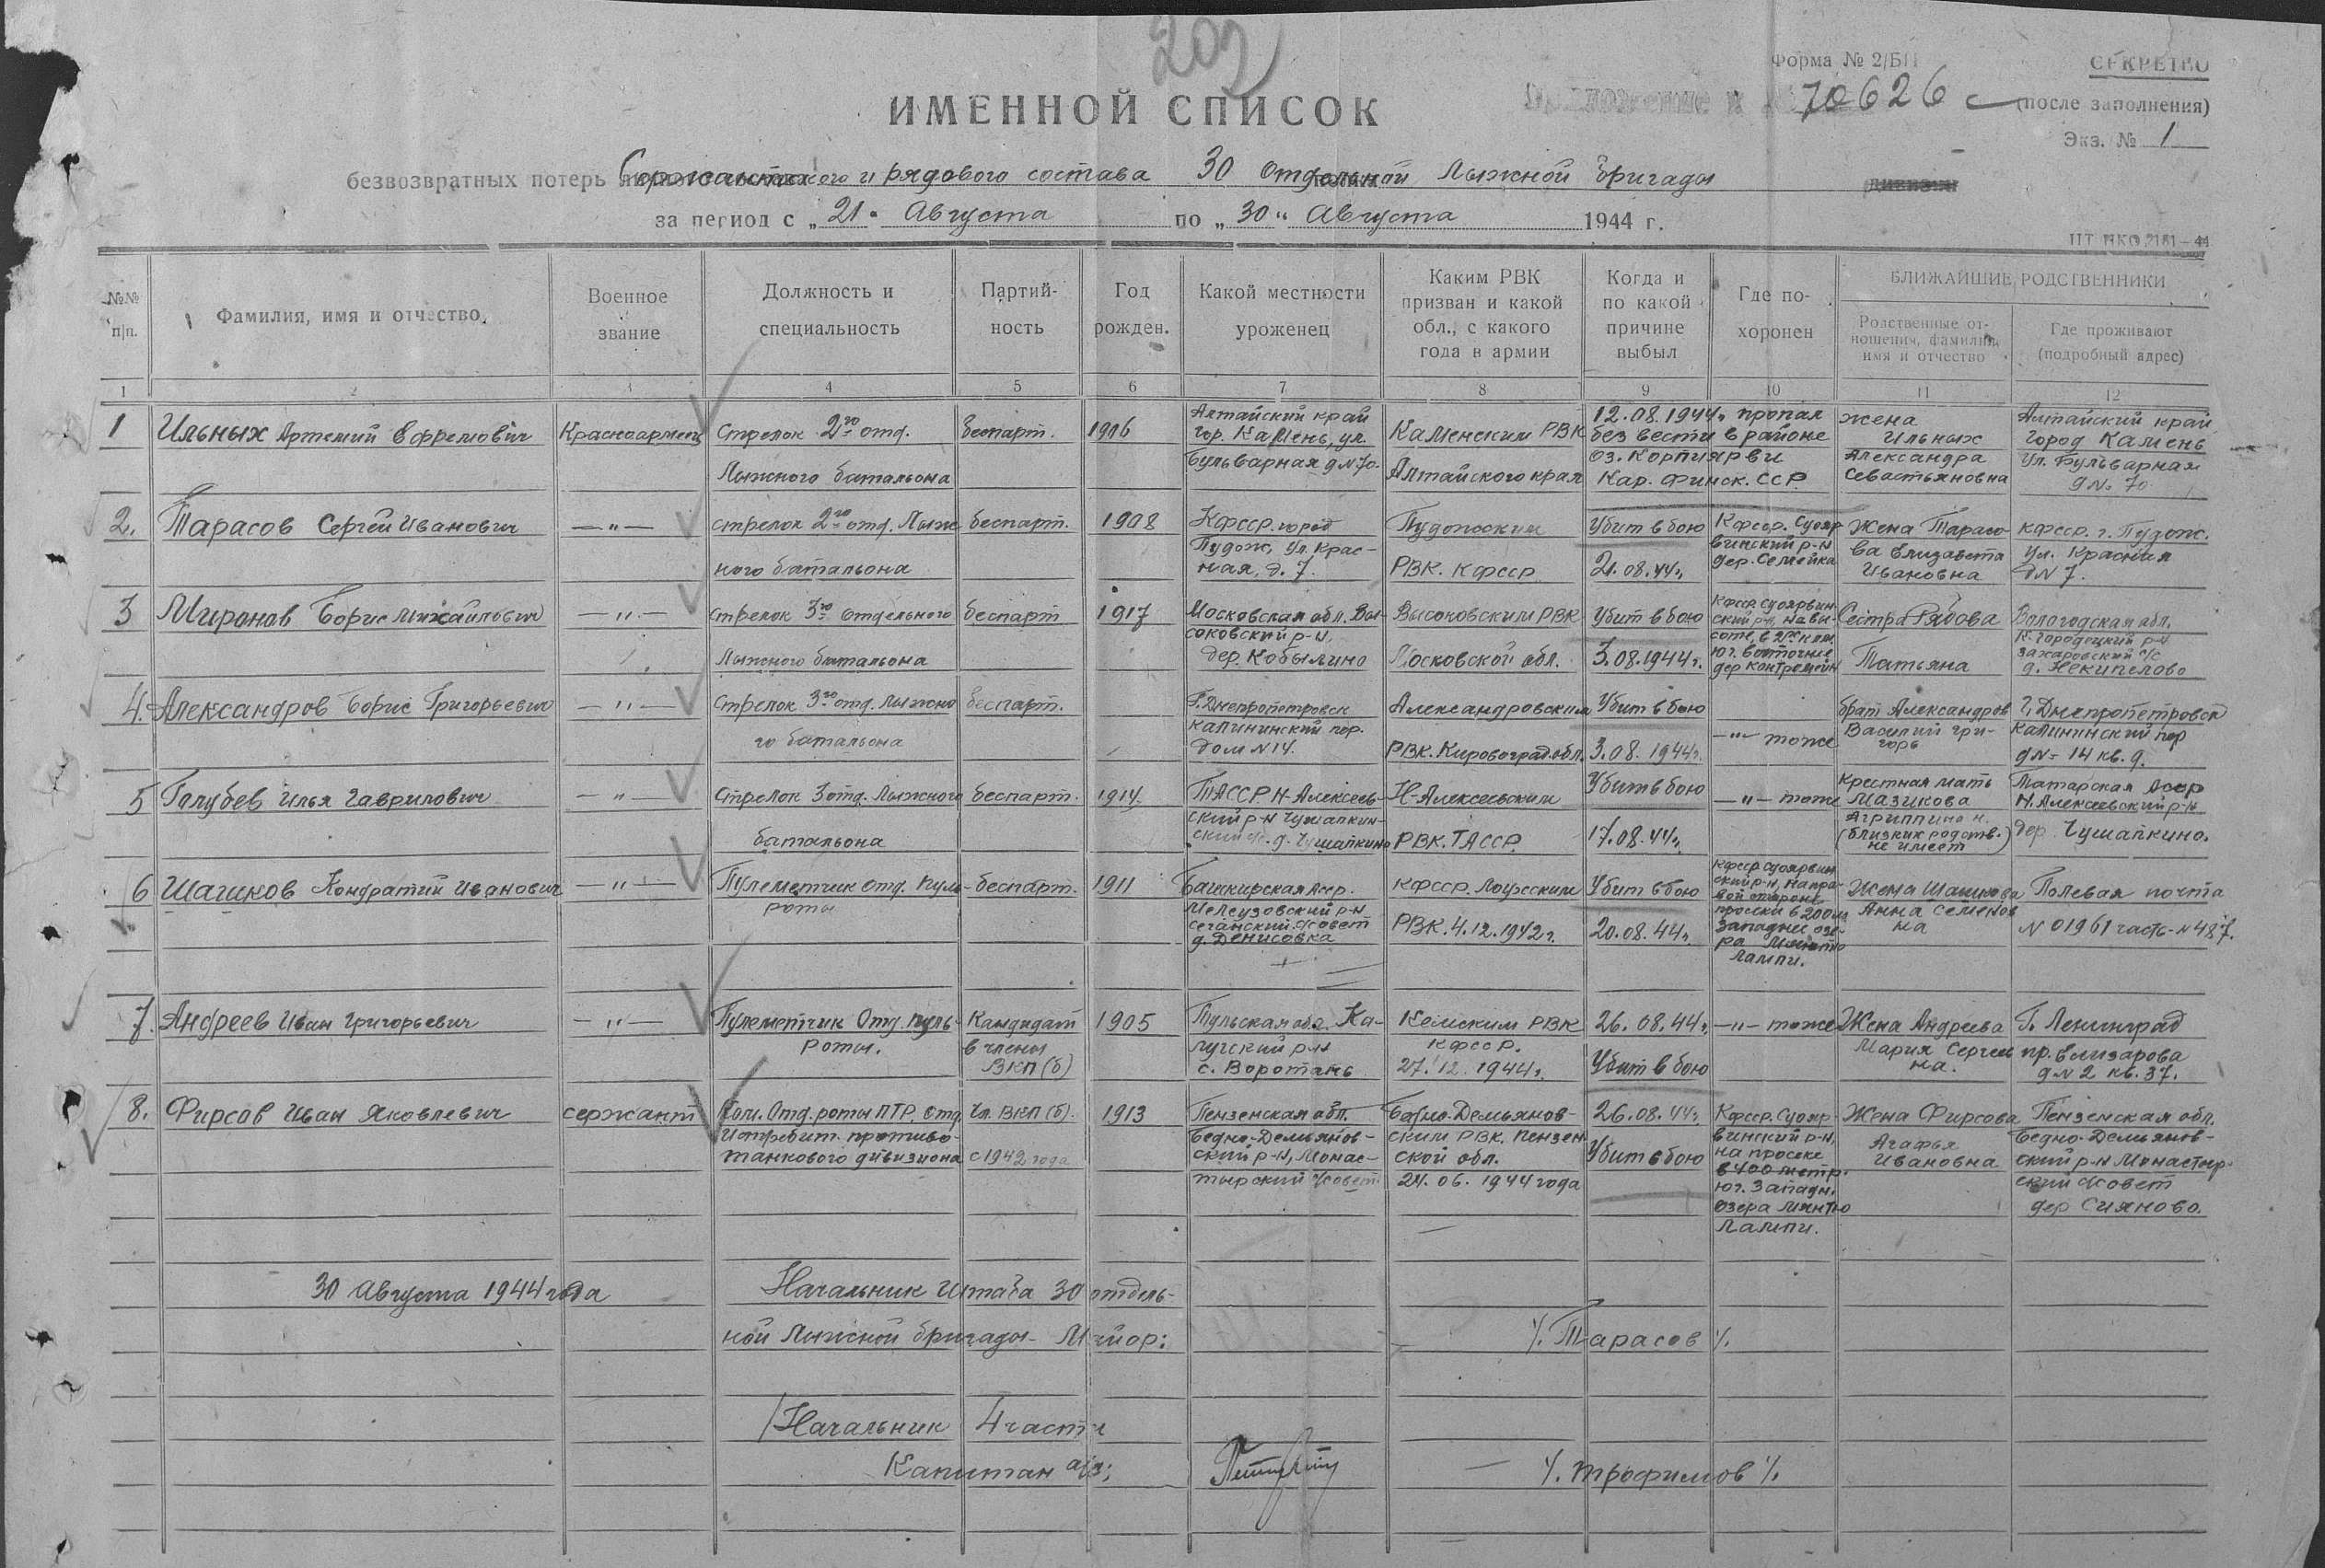 209
Форма № 2/БП
СЕКРЕТНО
ИМЕННОЙ СПИСОК
Приложение к № 70626 с
(после заполнения)
Экз. № 1
безвозвратных потерь Сержантского и рядового состава 30 отдельной Лыжной бригады
за период с „21" Августа по „30" Августа 1944 г.
№№ п/п.
Фамилия, имя и отчество
Военное звание
Должность и специальность
Партий-
ность
Год рожден.
Какой местности уроженец
Каким РВК
призван и какой
обл., с какого
года в армии
Когда и
по какой
причине
выбыл
Где по-
хоронен
БЛИЖАЙШИЕ РОДСТВЕННИКИ
Родственные от-
ношения, фамилия,
имя и отчество
Где проживают
(подробный адрес)
1 2 3 4 5 6 7 8 9 10 11 12
1 Ильных Артемий Ефремович
Красноармеец
Стрелок 2го отд.
Лыжного батальона
беспарт.
1906
Алтайский край
гор. Камень, ул.
Бульварная д№70.
Каменским РВК
Алтайского края
12.08.1944г. пропал
без вести в районе
оз. Корпиярви
Кар. Финск. ССР.
жена
Ильных
Александра
Севастьяновна
Алтайский край
город Камень
ул. Бульварная
д№ 70
2. Тарасов Сергей Иванович
— " —
стрелок 2го отд. Лыж
ного батальона
беспарт.
1908
Кфсср. город
Пудож, ул. Крас-
ная, д. 7.
Пудожским
РВК. Кфсср
Убит в бою
21.08.44г.
Кфсср. Суояр
винский р-н
дер. Семейка
Жена Тарасо-
ва Елизавета
Ивановна
кфсср. г. Пудож.
ул. Красная
д№ 7.
3 Миронов Борис Михайлович
— " —
стрелок 3го отдельного
Лыжного батальона
беспарт
1917
Московская обл. Вы-
соковский р-н,
дер. Кобылино
Высоковским РВК
Московской обл.
Убит в бою
3.08.1944г.
Кфсср Суоярвин
ский р-н, на вы-
юг. восточнее
Сестра Рябова
Татьяна
Вологодская обл.
К. Городецкий р-н
Захаровский с/с
д. Некипелово
4. Александров Борис Григорьевич
— " —
Стрелок 3го отд. Лыжно
го батальона
беспарт.
Г. Днепропетровск
Калининский пор.
Дом №14.
Александровским
РВК. Кировоград.обл.
Убит в бою
3.08.1944г.
— " — тоже
брат Александров
Василий Гри-
горь
Г. Днепропетровск
Калининский пор
д№- 14 кв. 9.
5 Голубев Илья Гаврилович
— "
Стрелок 3 отд. Лыжного
батальона
беспарт.
1914.
ТАССР. Н-Алексеев-
ский р-н Чушапкин-
ский с/с. д. Чушапкино
Н Алексеевским
РВК. ТАССР.
Убит в бою
17.08.44г.
— " — тоже
Крестная мать
Мазикова
Агриппина н.
(близких родств.)
не имеет
Татарская Асср
Н. Алексеевский р-н
дер. Чушапкино.
6 Шашков Кондратий Иванович
— " —
Пулеметчик отд. пуль-
роты
беспарт.
1911
Башкирская Асср.
Мелеузовский р-н
сеганский с/совет
д. Денисовка
кфсср. Лоухским
РВК. 4.12.1942г.
Убит в бою
20.08.44г.
Кфсср Суоярвин
ский р-н, на пра-
вой стороне
просеки в 200 м
Западнее озе-
ра Лиентто
лампи.
Жена Шашкова
Анна Семенов
на
Полевая почта
№ 01961 часть-№ 487.
7. Андреев Иван Григорьевич
— " —
Пулеметчик Отд. пуль-
роты.
Кандидат
в члены
ВКП(б)
1905
Тульская обл. Ка-
лужский р-н
с. Воротань
Кемским РВК
кфсср.
27.12.1944г.
26.08.44г.
Убит в бою
— " — тоже
Жена Андреева
Мария Сергеев
на.
Г. Ленинград
пр. Елизарова
д№ 2 кв. 37.
8. Фирсов Иван Яковлевич
сержант
Ком. Отд. роты ПТР. Отд.
Истребит. противо-
танкового дивизиона
Чл. ВКП(б).
с 1942 года
1913
Пензенская обл.
Бедно-Демьянов-
ский р-н, Монас-
тырский с/совет.
Бедно-Демьянов-
ским РВК. Пензен
ской обл.
24.06.1944 года
26.08.44г.
Убит в бою
Кфсср. Суояр-
винский р-н,
на просеке
в 400 метр.
юг. Западн.
озера Лиентто
лампи.
Жена Фирсова
Агафья
Ивановна
Пензенская обл.
Бедно-Демьянов-
ский р-н Монастыр-
ский с/совет
дер Сияново.
30 Августа 1944 года
Начальник Штаба 30 отдель-
ной Лыжной бригады- Майор:
/. Тарасов /.
/Начальник 4 части
Капитан а/с;
/. Трофимов /.